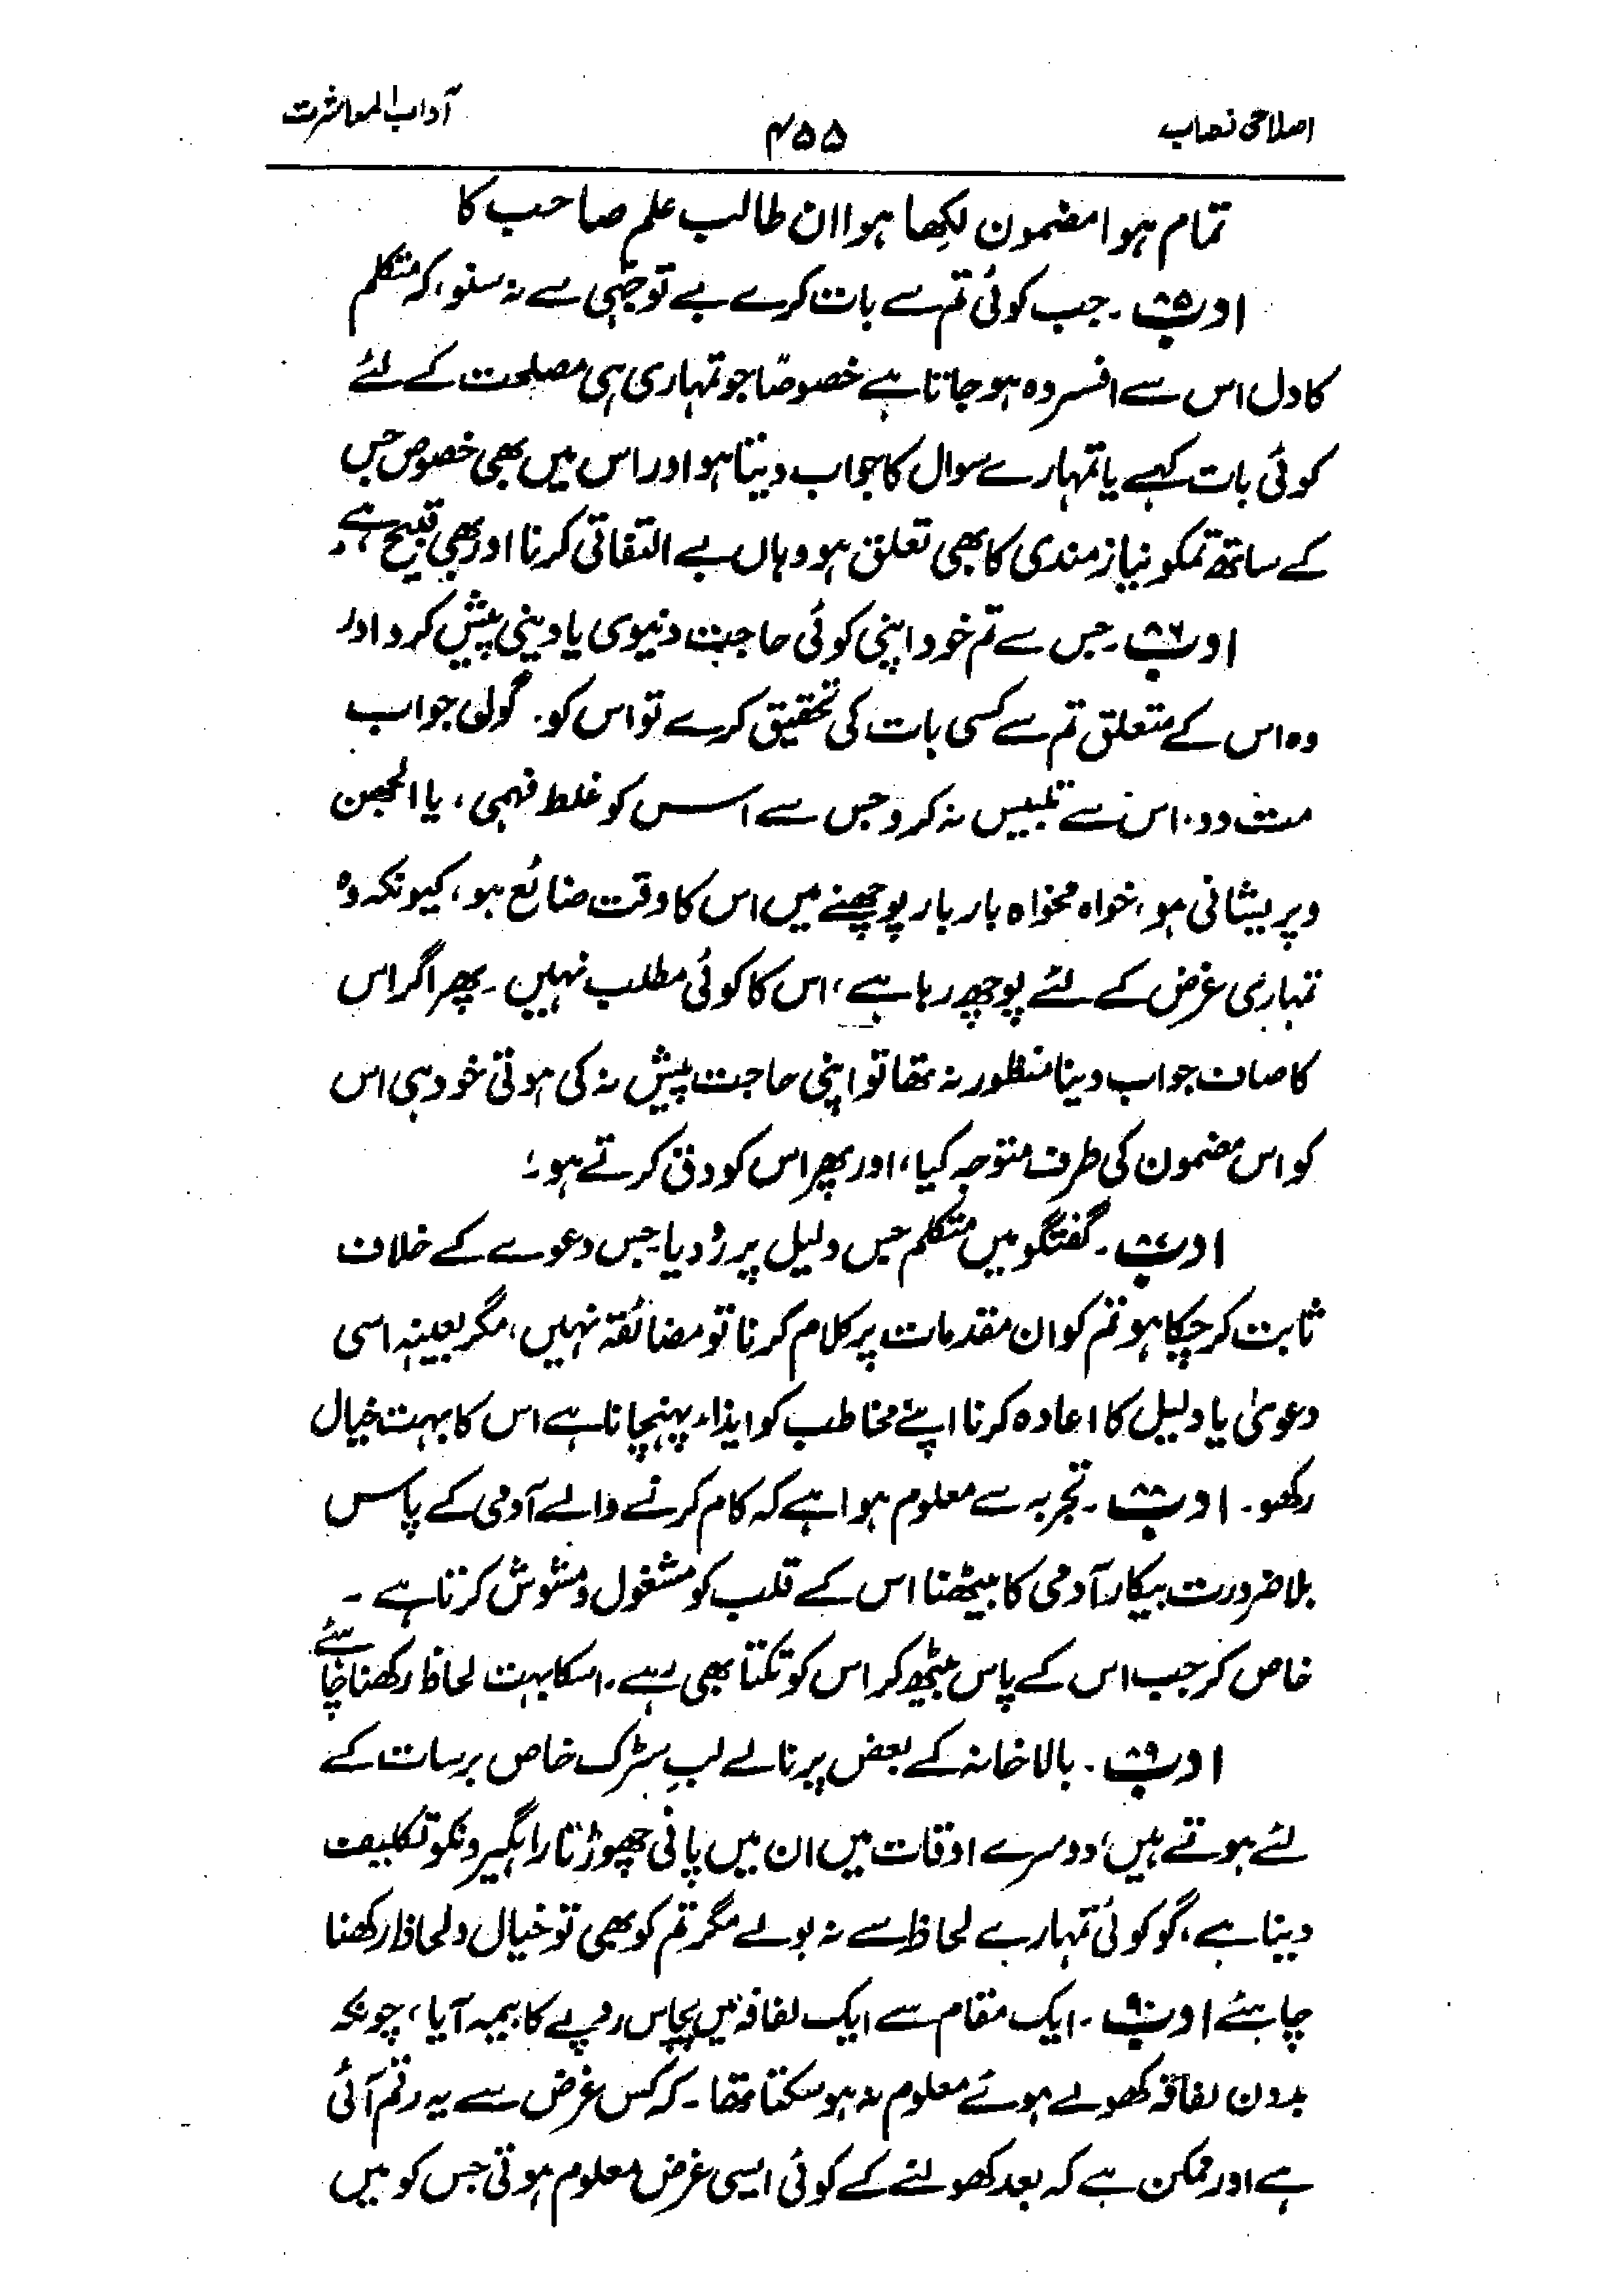 اصلاحی نصاب ۴۵۵ آداب المعاشرت
تمام ہوا مضمون لکھا ہوا ان طالب علم صاحب کا
ادب ۸۵ ۔ جب کوئی تم سے بات کرے بے توجہی سے نہ سنو، کہ متکلم
کا دل اس سے افسردہ ہو جاتا ہے خصوصًا جو تمہاری ہی مصلحت کے لئے
کوئی بات کہے یا تمہارے سوال کا جواب دیتا ہو اور اس میں بھی خصوص جس
کے ساتھ تمکو نیاز مندی کا بھی تعلق ہو وہاں بے التفاتی کرنا اور بھی قبیح ہے۔
ادب ۸۶ ۔ جس سے تم خود اپنی کوئی حاجت دنیوی یا دینی پیش کرو اور
وہ اس کے متعلق تم سے کسی بات کی تحقیق کرے تو اس کو ۔ گول جواب
مت دو ۔ اس سے تلبیس نہ کرو جس سے اس کو غلط فہمی، یا الجھن
و پریشانی ہو، خواہ مخواہ بار بار پوچھنے میں اس کا وقت ضائع ہو، کیونکہ وہ
تمہاری غرض کے لئے پوچھ رہا ہے، اس کا کوئی مطلب نہیں ۔ پھر اگر اس
کا صاف جواب دینا منظور نہ تھا تو اپنی حاجت پیش نہ کی ہوتی خود ہی اس
کو اس مضمون کی طرف متوجہ کیا، اور پھر اس کو دق کرتے ہو ؛
ادب ۸۷ ۔ گفتگو میں متکلم جس دلیل پر رُد یا جس دعوے کے خلاف
ثابت کر چکا ہو تم کو ان مقدمات پر کلام کرنا تو مضائقہ نہیں، مگر بعینہٖ اسی
دعویٰ یا دلیل کا اعادہ کرنا اپنے مخاطب کو ایذاء پہنچانا ہے اس کا بہت خیال
رکھو ۔ ادب ۸۸ ۔ تجربہ سے معلوم ہوا ہے کہ کام کرنے والے آدمی کے پاس
بلا ضرورت بیکار آدمی کا بیٹھنا اس کے قلب کو مشغول و مشوش کرتا ہے ۔
خاص کر جب اس کے پاس بیٹھ کر اس کو تکتا بھی رہے ۔ اسکا بہت لحاظ رکھنا چاہئے
ادب ۸۹ ۔ بالا خانہ کے بعض پرنالے لبِ سڑک خاص برسات کے
لئے ہوتے ہیں، دوسرے اوقات میں ان میں پانی چھوڑنا راہگیرونکو تکلیف
دینا ہے، گو کوئی تمہارے لحاظ سے نہ بولے مگر تم کو بھی تو خیال و لحاظ رکھنا
چاہئے ادب ۹۰ ۔ ایک مقام سے ایک لفافہ میں پچاس روپے کا بیمہ آیا، چونکہ
بدون لفافہ کھولے ہوئے معلوم نہ ہو سکتا تھا ۔ کہ کس غرض سے یہ رقم آئی
ہے اور ممکن ہے کہ بعد کھولنے کے کوئی ایسی غرض معلوم ہوتی جس کو میں